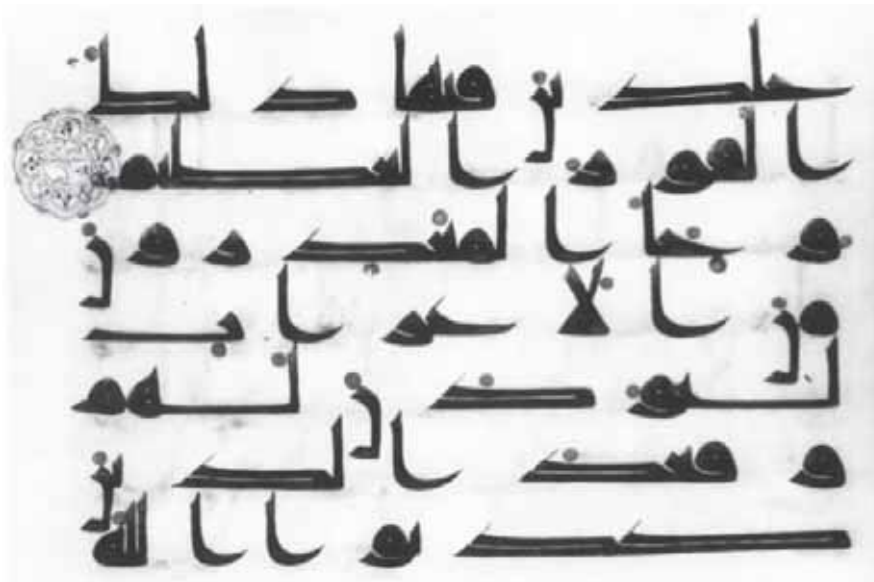 خلدين فيها ذلك
الفوز العظيم
وجا المعذرون
من الاعراب
ليوذن لهم
وقعد الذين
كذبوا الله